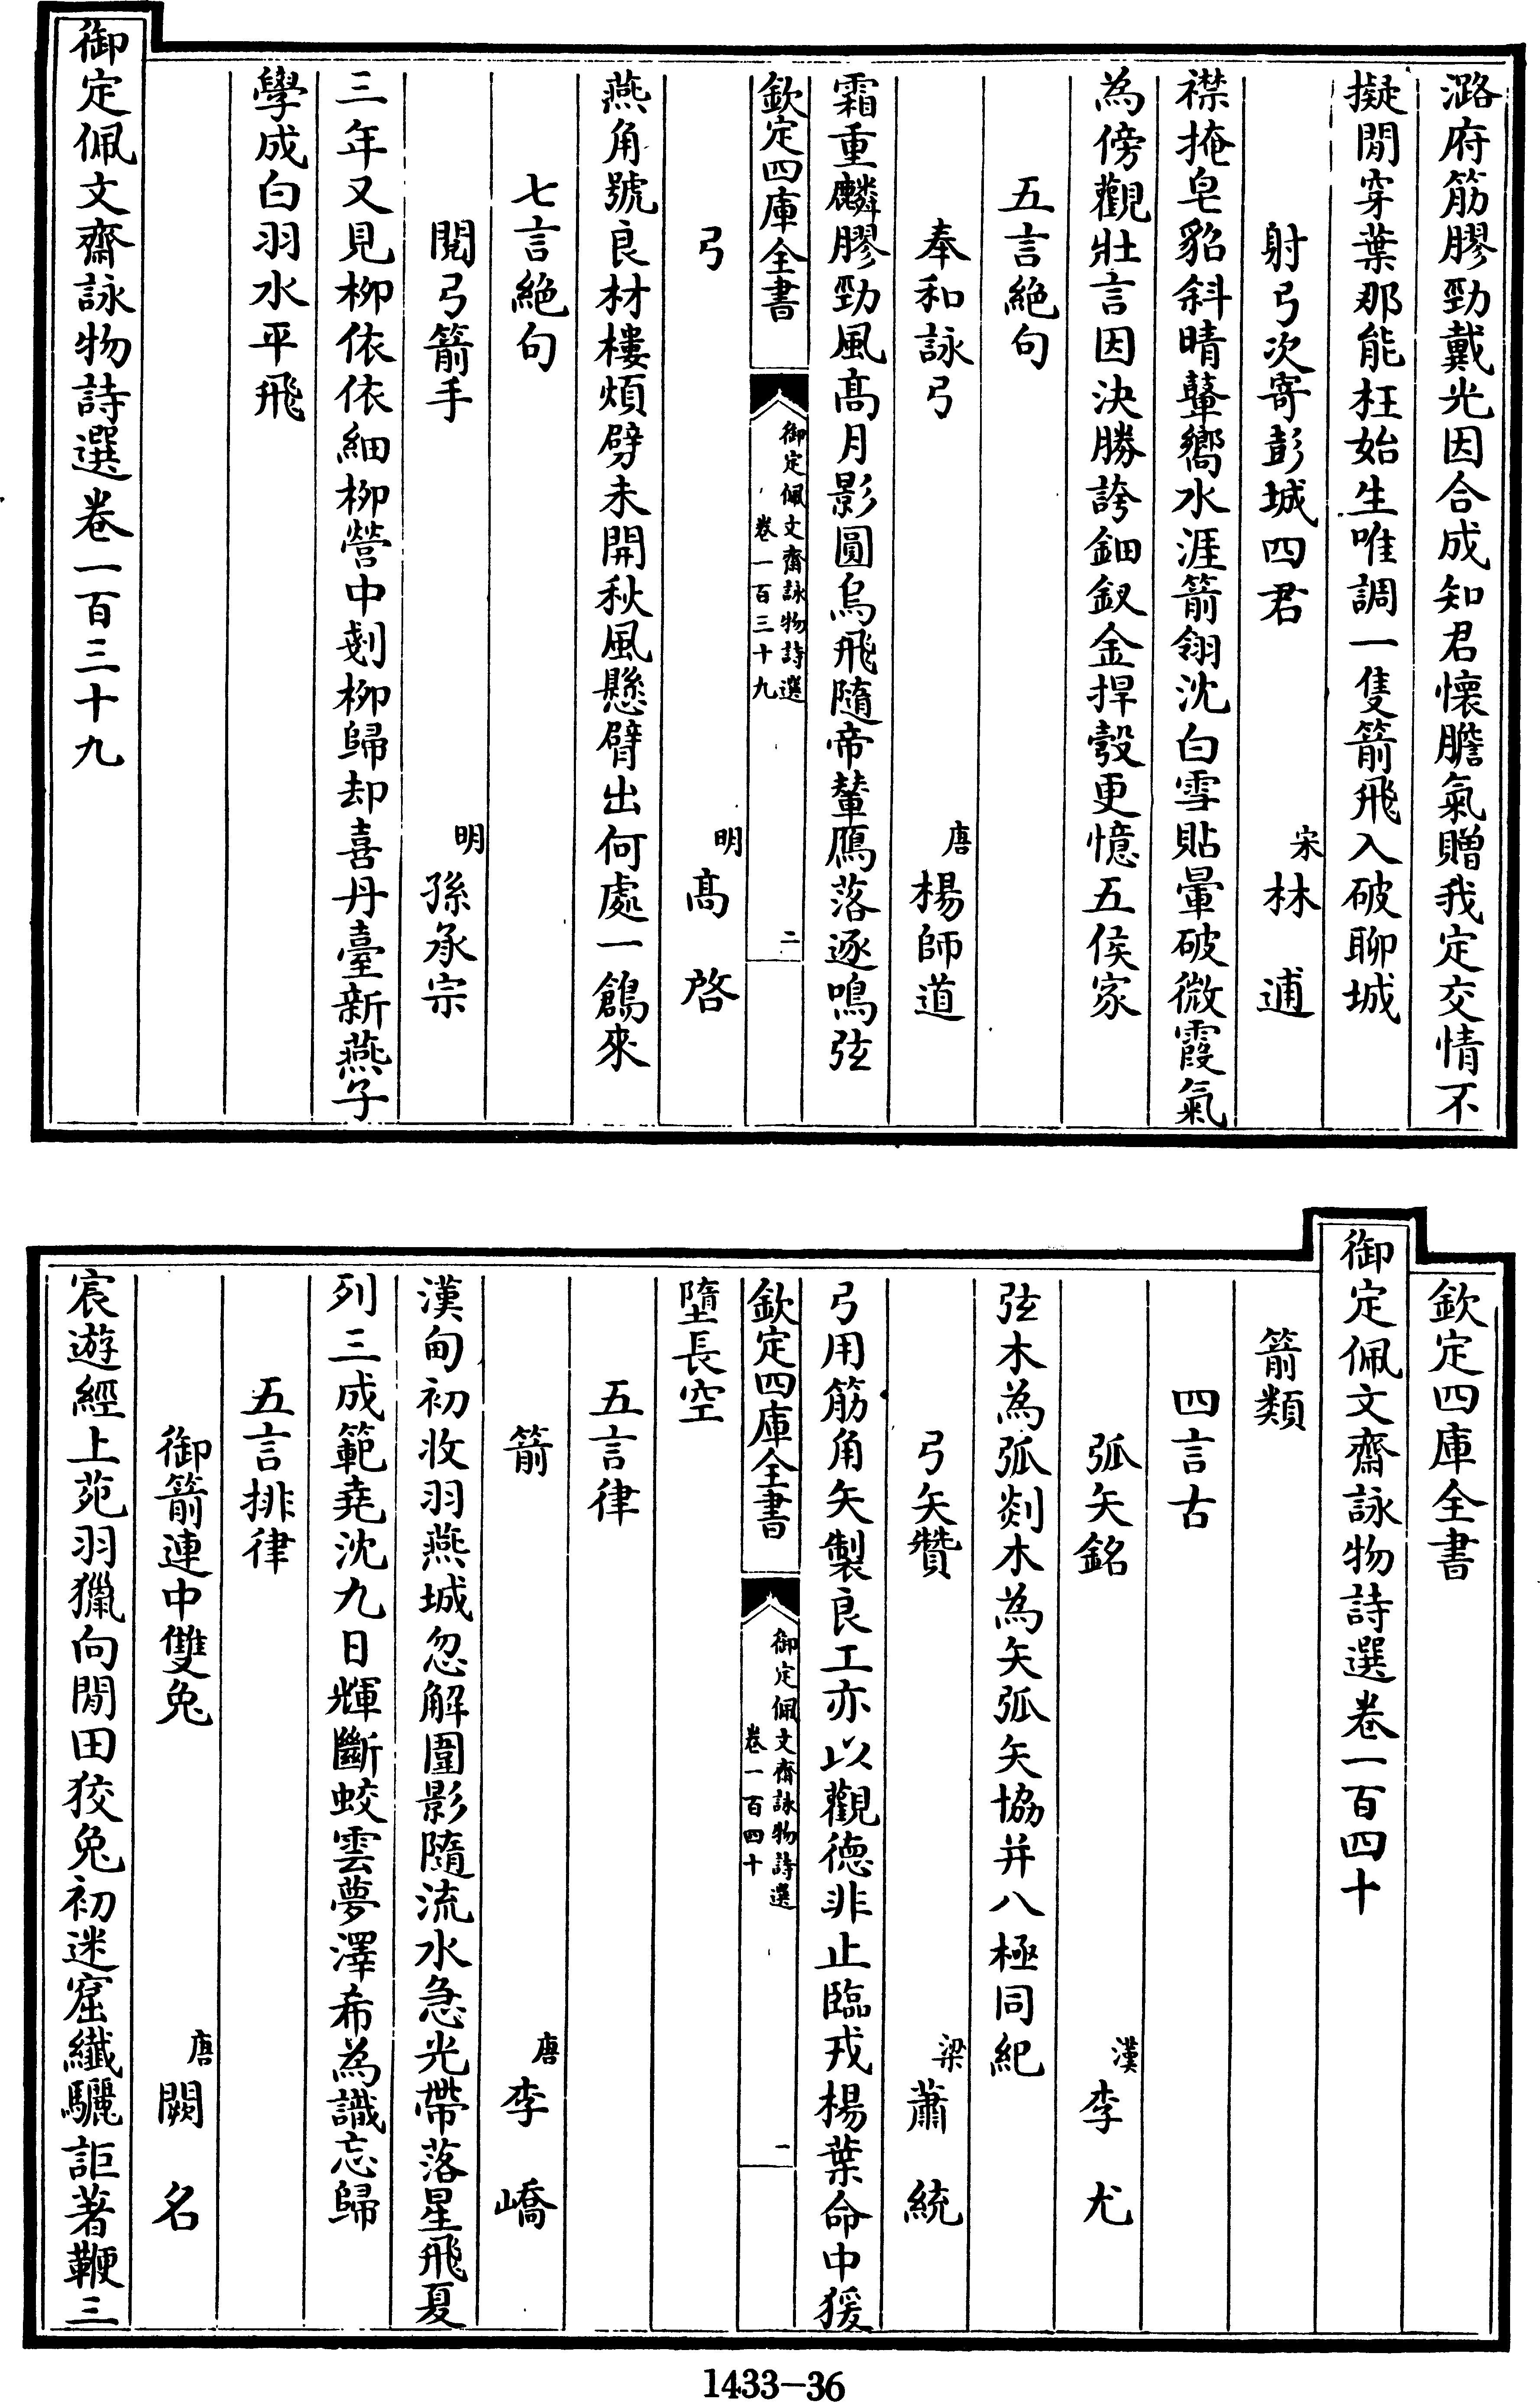 潞府筋膠勁戴光因合成知君懷膽氣贈我定交情不
擬閒穿葉那能枉始生唯調一隻箭飛入破聊城
射弓次寄彭城四君 宋 林逋
襟掩皂貂斜晴鼙嚮水涯箭翎沈白雪貼暈破微霞氣
為傍觀壯言因決勝誇鈿釵金捍彀更憶五侯家
五言絕句
奉和詠弓 唐 楊師道
霜重麟膠勁風髙月影圓烏飛隨帝輦鴈落逐鳴弦
欽定四庫全書 御定佩文齋詠物詩選 卷一百三十九 二
弓 明 髙啓
燕角號良材樓煩劈未開秋風懸臂出何處一鶬來
七言絕句
閱弓箭手 明 孫承宗
三年又見柳依依細柳營中剗柳歸却喜丹臺新燕子
學成白羽水平飛
御定佩文齋詠物詩選卷一百三十九
欽定四庫全書
御定佩文齋詠物詩選卷一百四十
箭類
四言古
弧矢銘 漢 李尤
弦木為弧剡木為矢弧矢協并八極同紀
弓矢贊 梁 蕭統
弓用筋角矢製良工亦以觀徳非止臨戎楊葉命中猨
欽定四庫全書 御定佩文齋詠物詩選 卷一百四十 一
墮長空
五言律
箭 唐 李嶠
漢甸初收羽燕城忽解圍影隨流水急光帶落星飛夏
列三成範堯沈九日輝斷蛟雲夢澤希為識忘歸
五言排律
御箭連中雙兔 唐 闕名
宸遊經上苑羽獵向閒田狡兔初迷窟纖驪詎著鞭三
1433-36